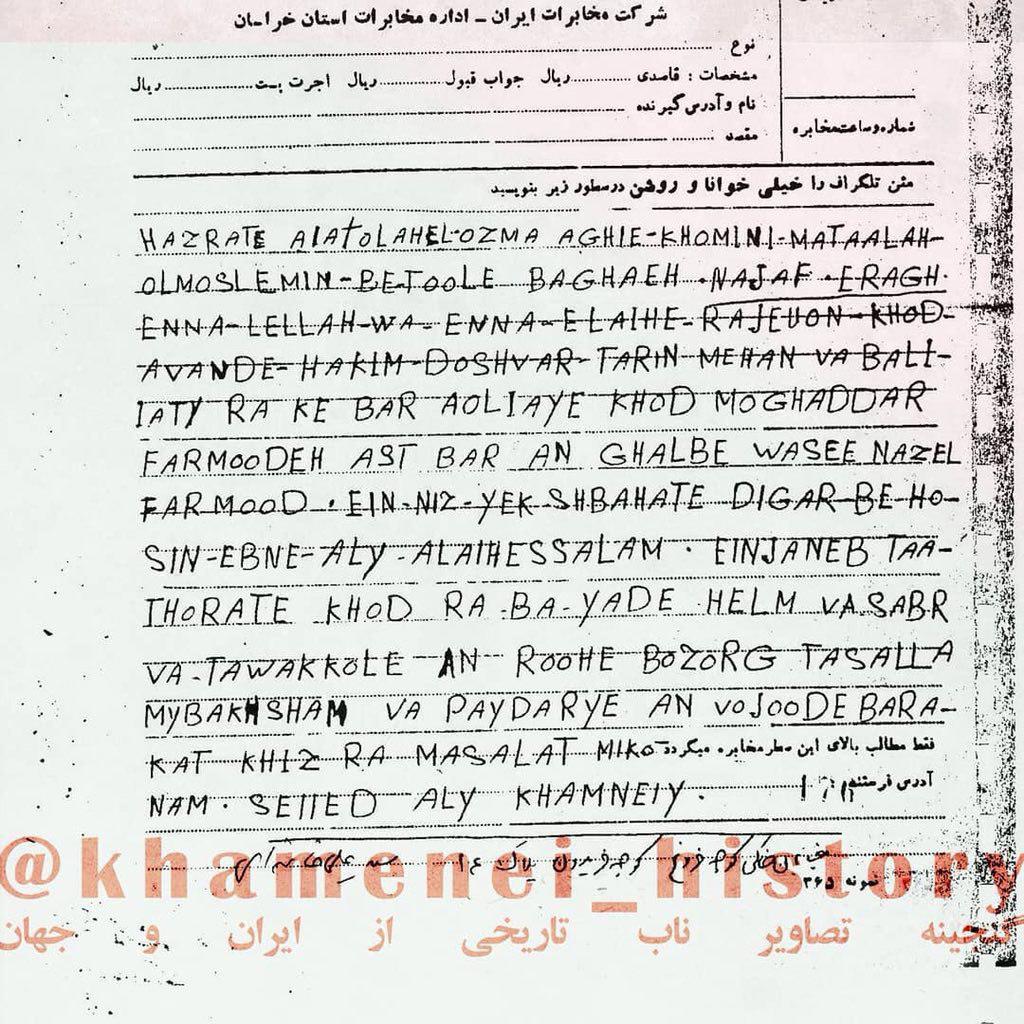 شرکت مخابرات ایران - اداره مخابرات استان خراسان
نوع
مشخصات : قاصدی ............ریال جواب قبول............ریال اجرت پست............ریال
نام و آدرس گیرنده
مقصد
شماره وساعت مخابره
متن تلگراف را خیلی خوانا و روشن درسطور زیر بنویسید
HAZRATE AIATOLAHEL-OZMA AGHIE-KHOMINI-MATAALAH-
OLMOSLEMIN-BETOOLE BAGHAEH .NAJAF .ERAGH.
ENNA-LELLAH-WA-ENNA-ELAIHE-RAJEUON-KHOD-
AVANDE-HAKIM-DOSHVAR-TARIN MEHAN VA BALI-
IATY RA KE BAR AOLIAYE KHOD MOGHADDAR
FARMOODEH AST BAR AN GHALBE WASEE NAZEL
FARMOOD . EIN-NIZ-YEK SHBAHATE DIGAR-BE-HO-
SIN-EBNE-ALY-ALAIHESSALAM . EINJANEB TAA-
THORATE KHOD RA-BA-YADE HELM VA SABR
VA-TAWAKKOLE AN ROOHE BOZORG TASALLA
MYBAKHSHAM VA PAYDARYE AN VOJOODE BARA-
KAT KHIZ RA MASALAT MIKO-
فقط مطالب بالای این سطر مخابره میگردد
NAM . SEIIED ALY KHAMNEIY .
آدرس فرستنده
نمونه ۳۶۵
@khamenei_history
گنجینه تصاویر ناب تاریخی از ایران و جهان